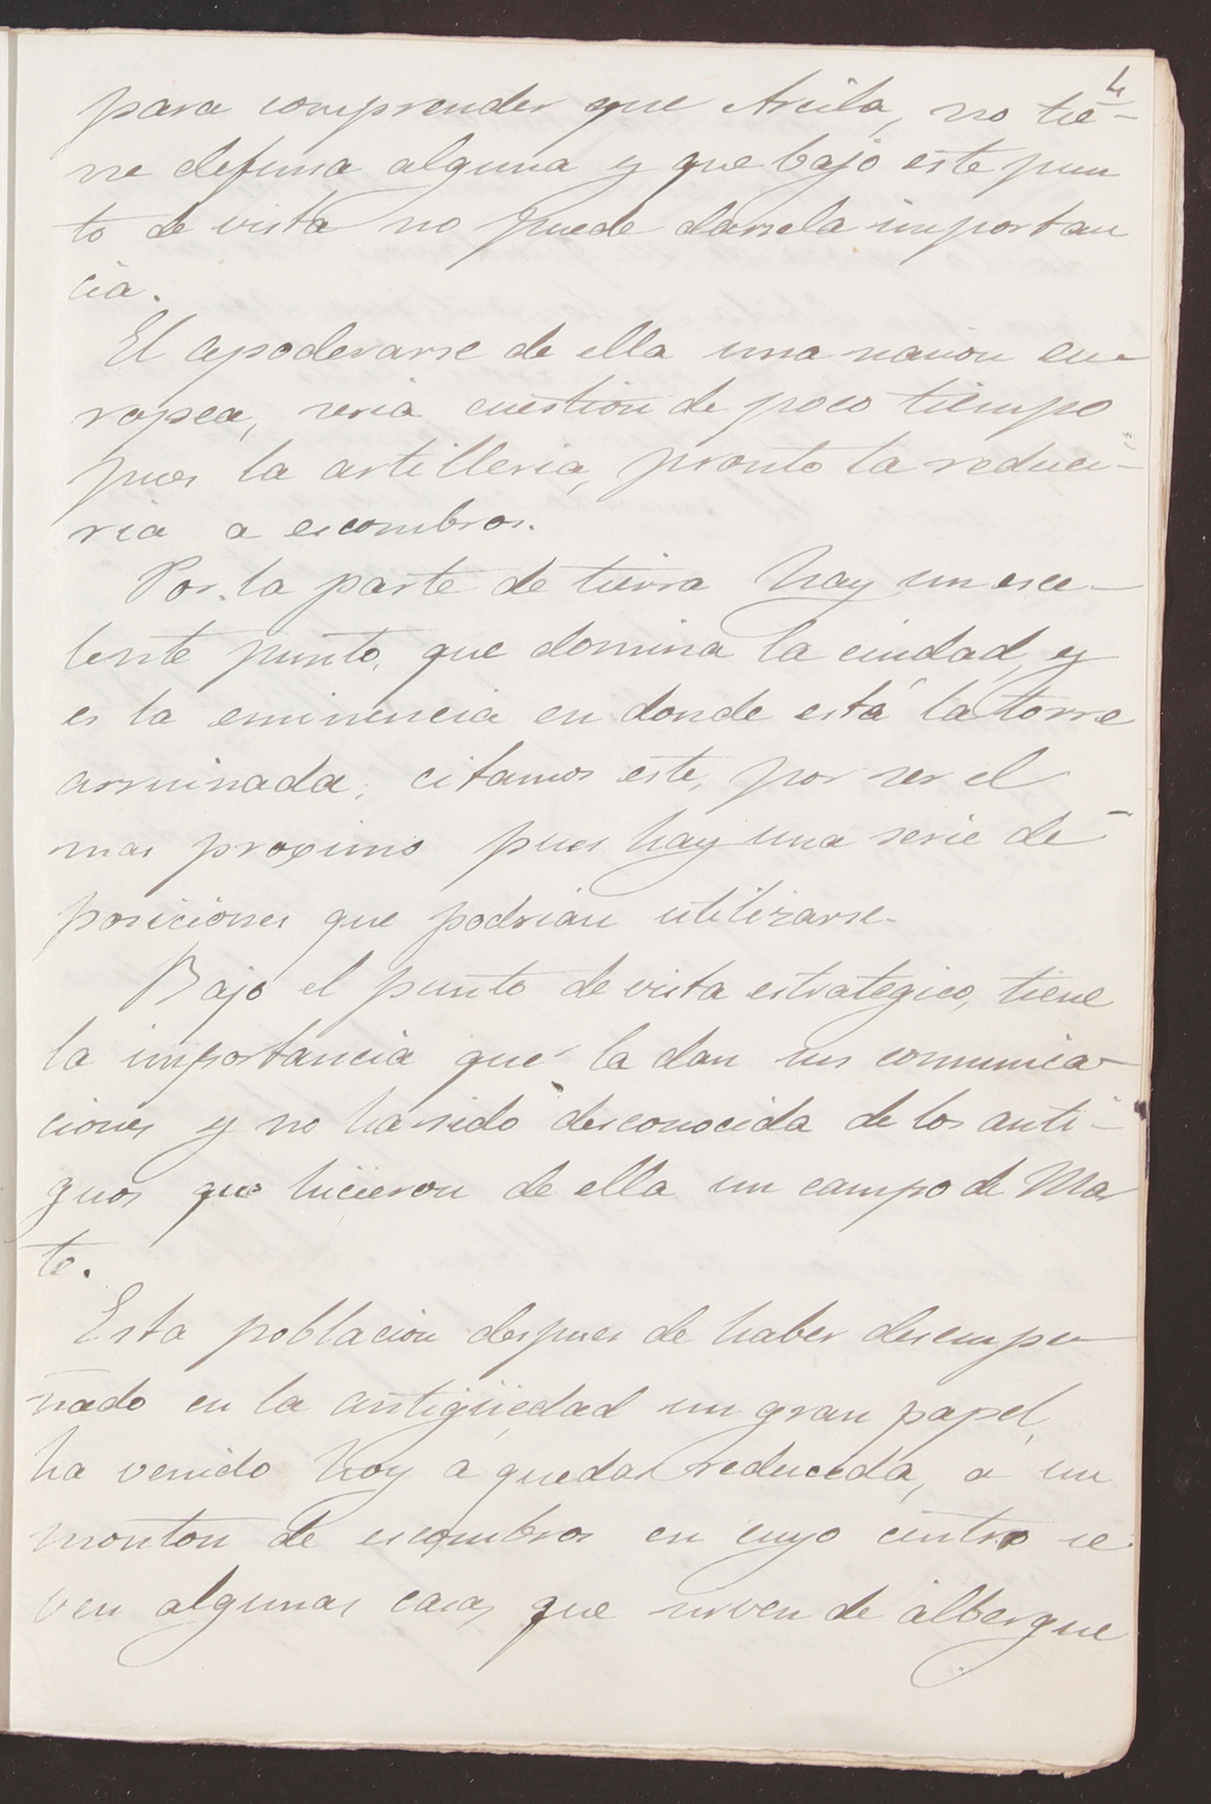 4
para comprender que Arcila, no tie-
ne defensa alguna y que bajo este pun
to de vista no puede darsela importan
cia.
El apoderarse de ella una nacion eu-
ropea, seria cuestion de poco tiempo
pues la artilleria, pronto la reduci-
ria a escombros.
Por la parte de tierra hay un esce-
lente punto, que domina la ciudad, y
es la eminencia en donde está la torre
arruinada; citamos este, por ser el
mas proximo pues hay una serie de
posiciones que podrian utilizarse.
Bajo el punto de vista estrategico, tiene
la importancia que la dan sus comunica-
ciones y no ha sido desconocida de los anti-
guos que hicieron de ella un campo de Mar
te.
Esta poblacion despues de haber desempe-
ñado en la antigüedad un gran papel,
ha venido hoy a quedar reducida, a un
monton de escombros en cuyo centro se
ven algunas casas que sirven de albergue